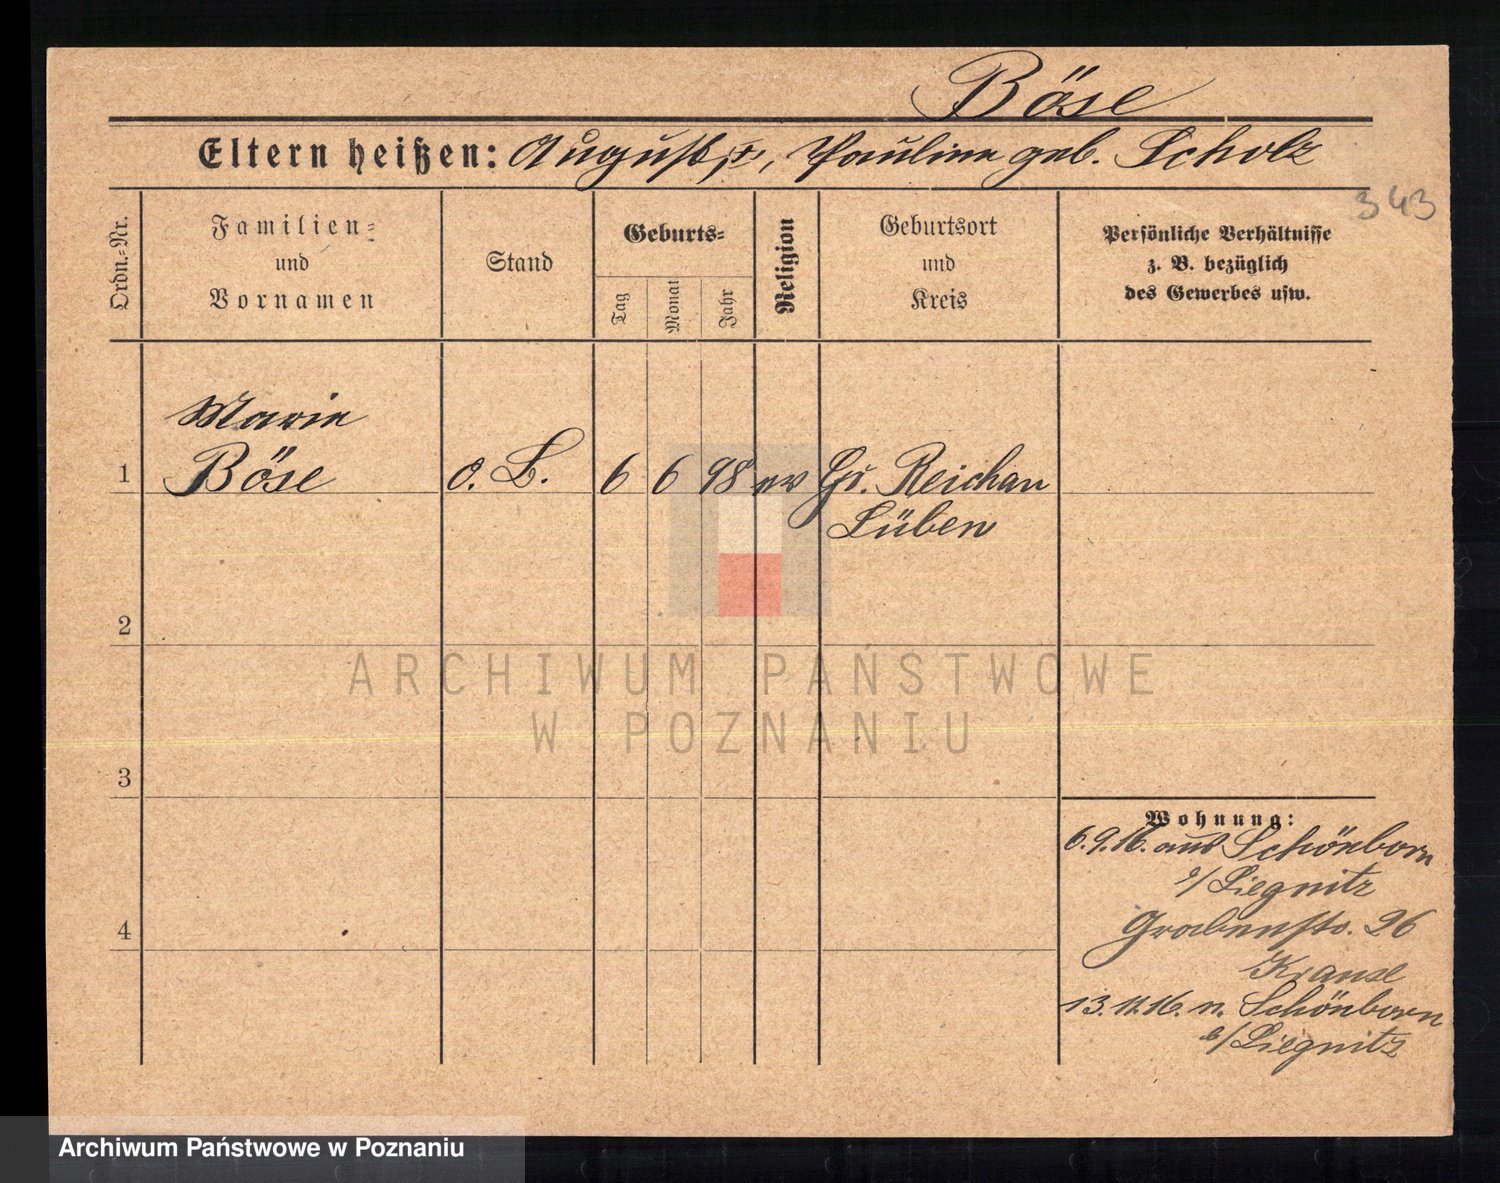 Böse
Eltern heißen: August †, Pauline geb. Scholz
343
Ordn.-Nr.
Familien-
und
Vornamen
Stand
Geburts-
Tag
Monat
Jahr
Religion
Geburtsort
und
Kreis
Persönliche Verhältnisse
z. B. bezüglich
des Gewerbes usw.
Marie
1 Böse o. B. 6 6 98 ev Gr. Reichen
Lüben
2
ARCHIWUM PAŃSTWOWE
W POZNANIU
3
Wohnung:
6.9.16. aus Schönborn
b/ Liegnitz
Grabenstr. 26
Krause
4
13.11.16. n. Schönborn
b/ Liegnitz
Archiwum Państwowe w Poznaniu